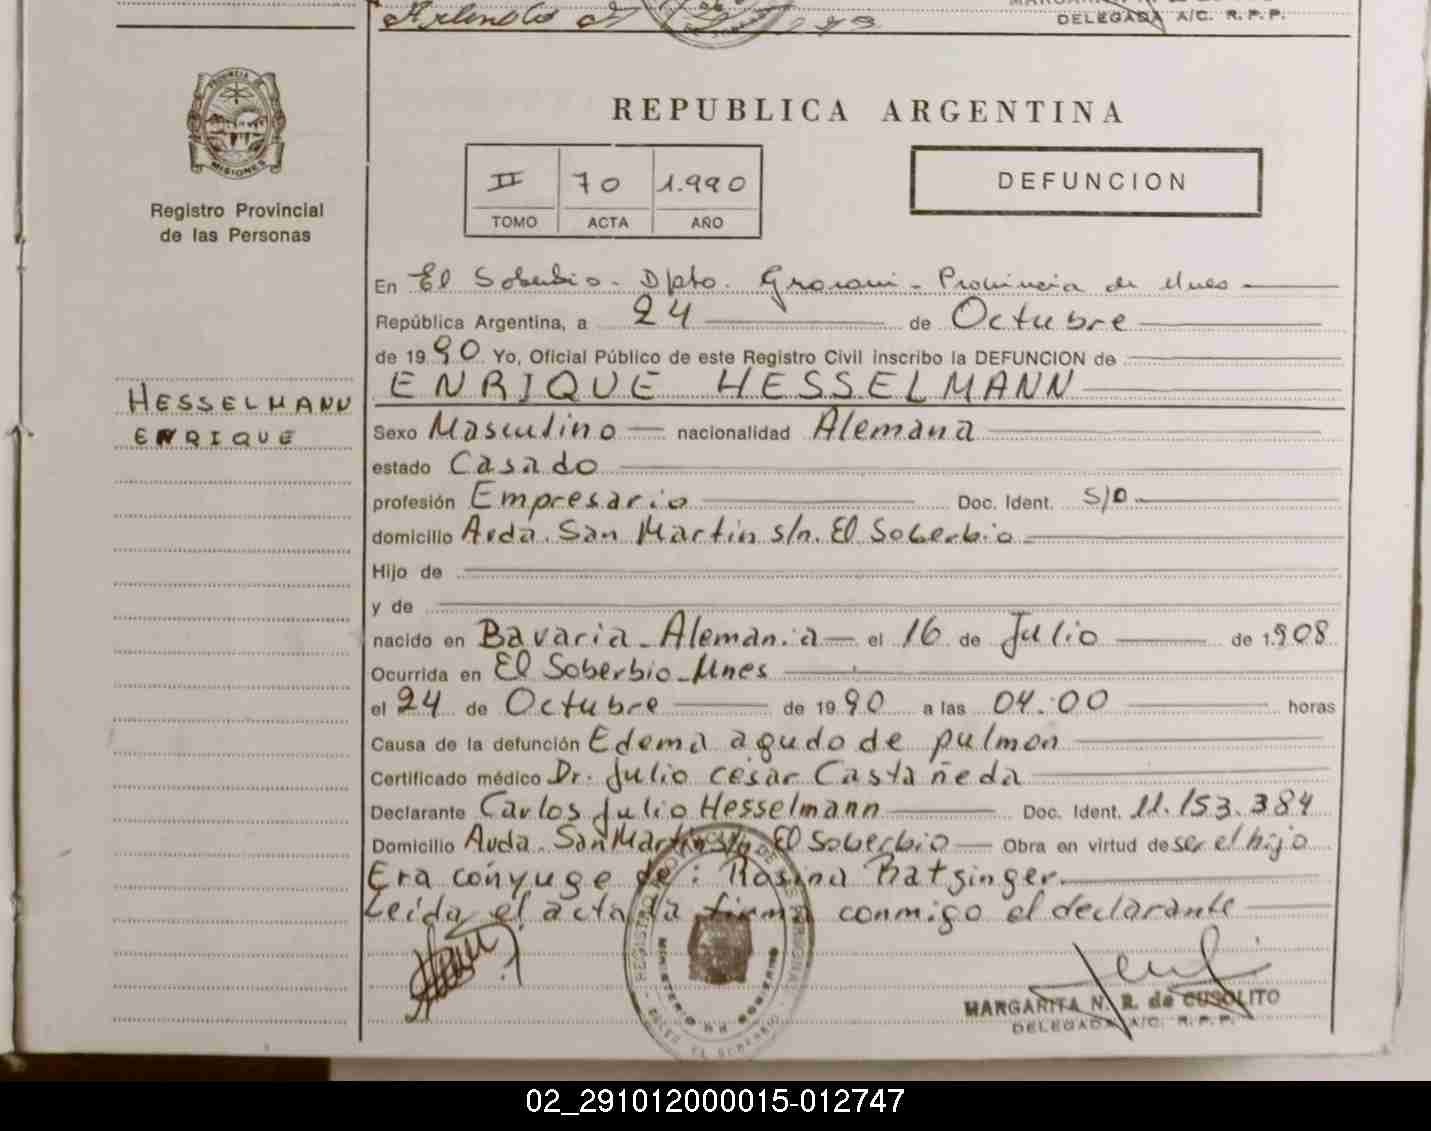 DELEGADA A/C. R. P. P.
PROVINCIA DE
MISIONES
Registro Provincial
de las Personas
REPUBLICA ARGENTINA
II 70 1.990
TOMO ACTA AÑO
DEFUNCION
En El Soberbio - Dpto. Guaraní - Provincia de Mnes
República Argentina, a 24 de Octubre
de 1990. Yo, Oficial Público de este Registro Civil inscribo la DEFUNCION de
ENRIQUE HESSELMANN
HESSELMANN
ENRIQUE
Sexo Masculino nacionalidad Alemana
estado Casado
profesión Empresario Doc. Ident. S/D
domicilio Avda. San Martin s/n. El Soberbio
Hijo de
y de
nacido en Bavaria - Alemania el 16 de Julio de 1.908
Ocurrida en El Soberbio - Mnes
el 24 de Octubre de 1990 a las 04:00 horas
Causa de la defunción Edema agudo de pulmon
Certificado médico Dr. Julio césar Castañeda
Declarante Carlos Julio Hesselmann Doc. Ident. 11.153.384
Domicilio Avda. San Martin s/n El Soberbio Obra en virtud de ser el hijo
Era cónyuge de: Rosina Ratzinger
Leída el acta la firma conmigo el declarante
MARGARITA N. R. de CUSOLITO
DELEGADA A/C. R. P. P.
02_291012000015-012747